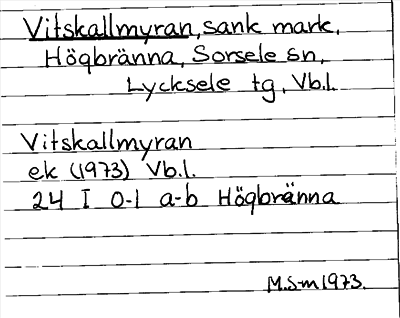 Vitskallmyran, sank mark,
Högbränna, Sorsele sn,
Lycksele tg, Vb.l.
Vitskallmyran
ek (1973) Vb.l.
24 I 0-1 a-b Högbränna
M.S-m 1973.